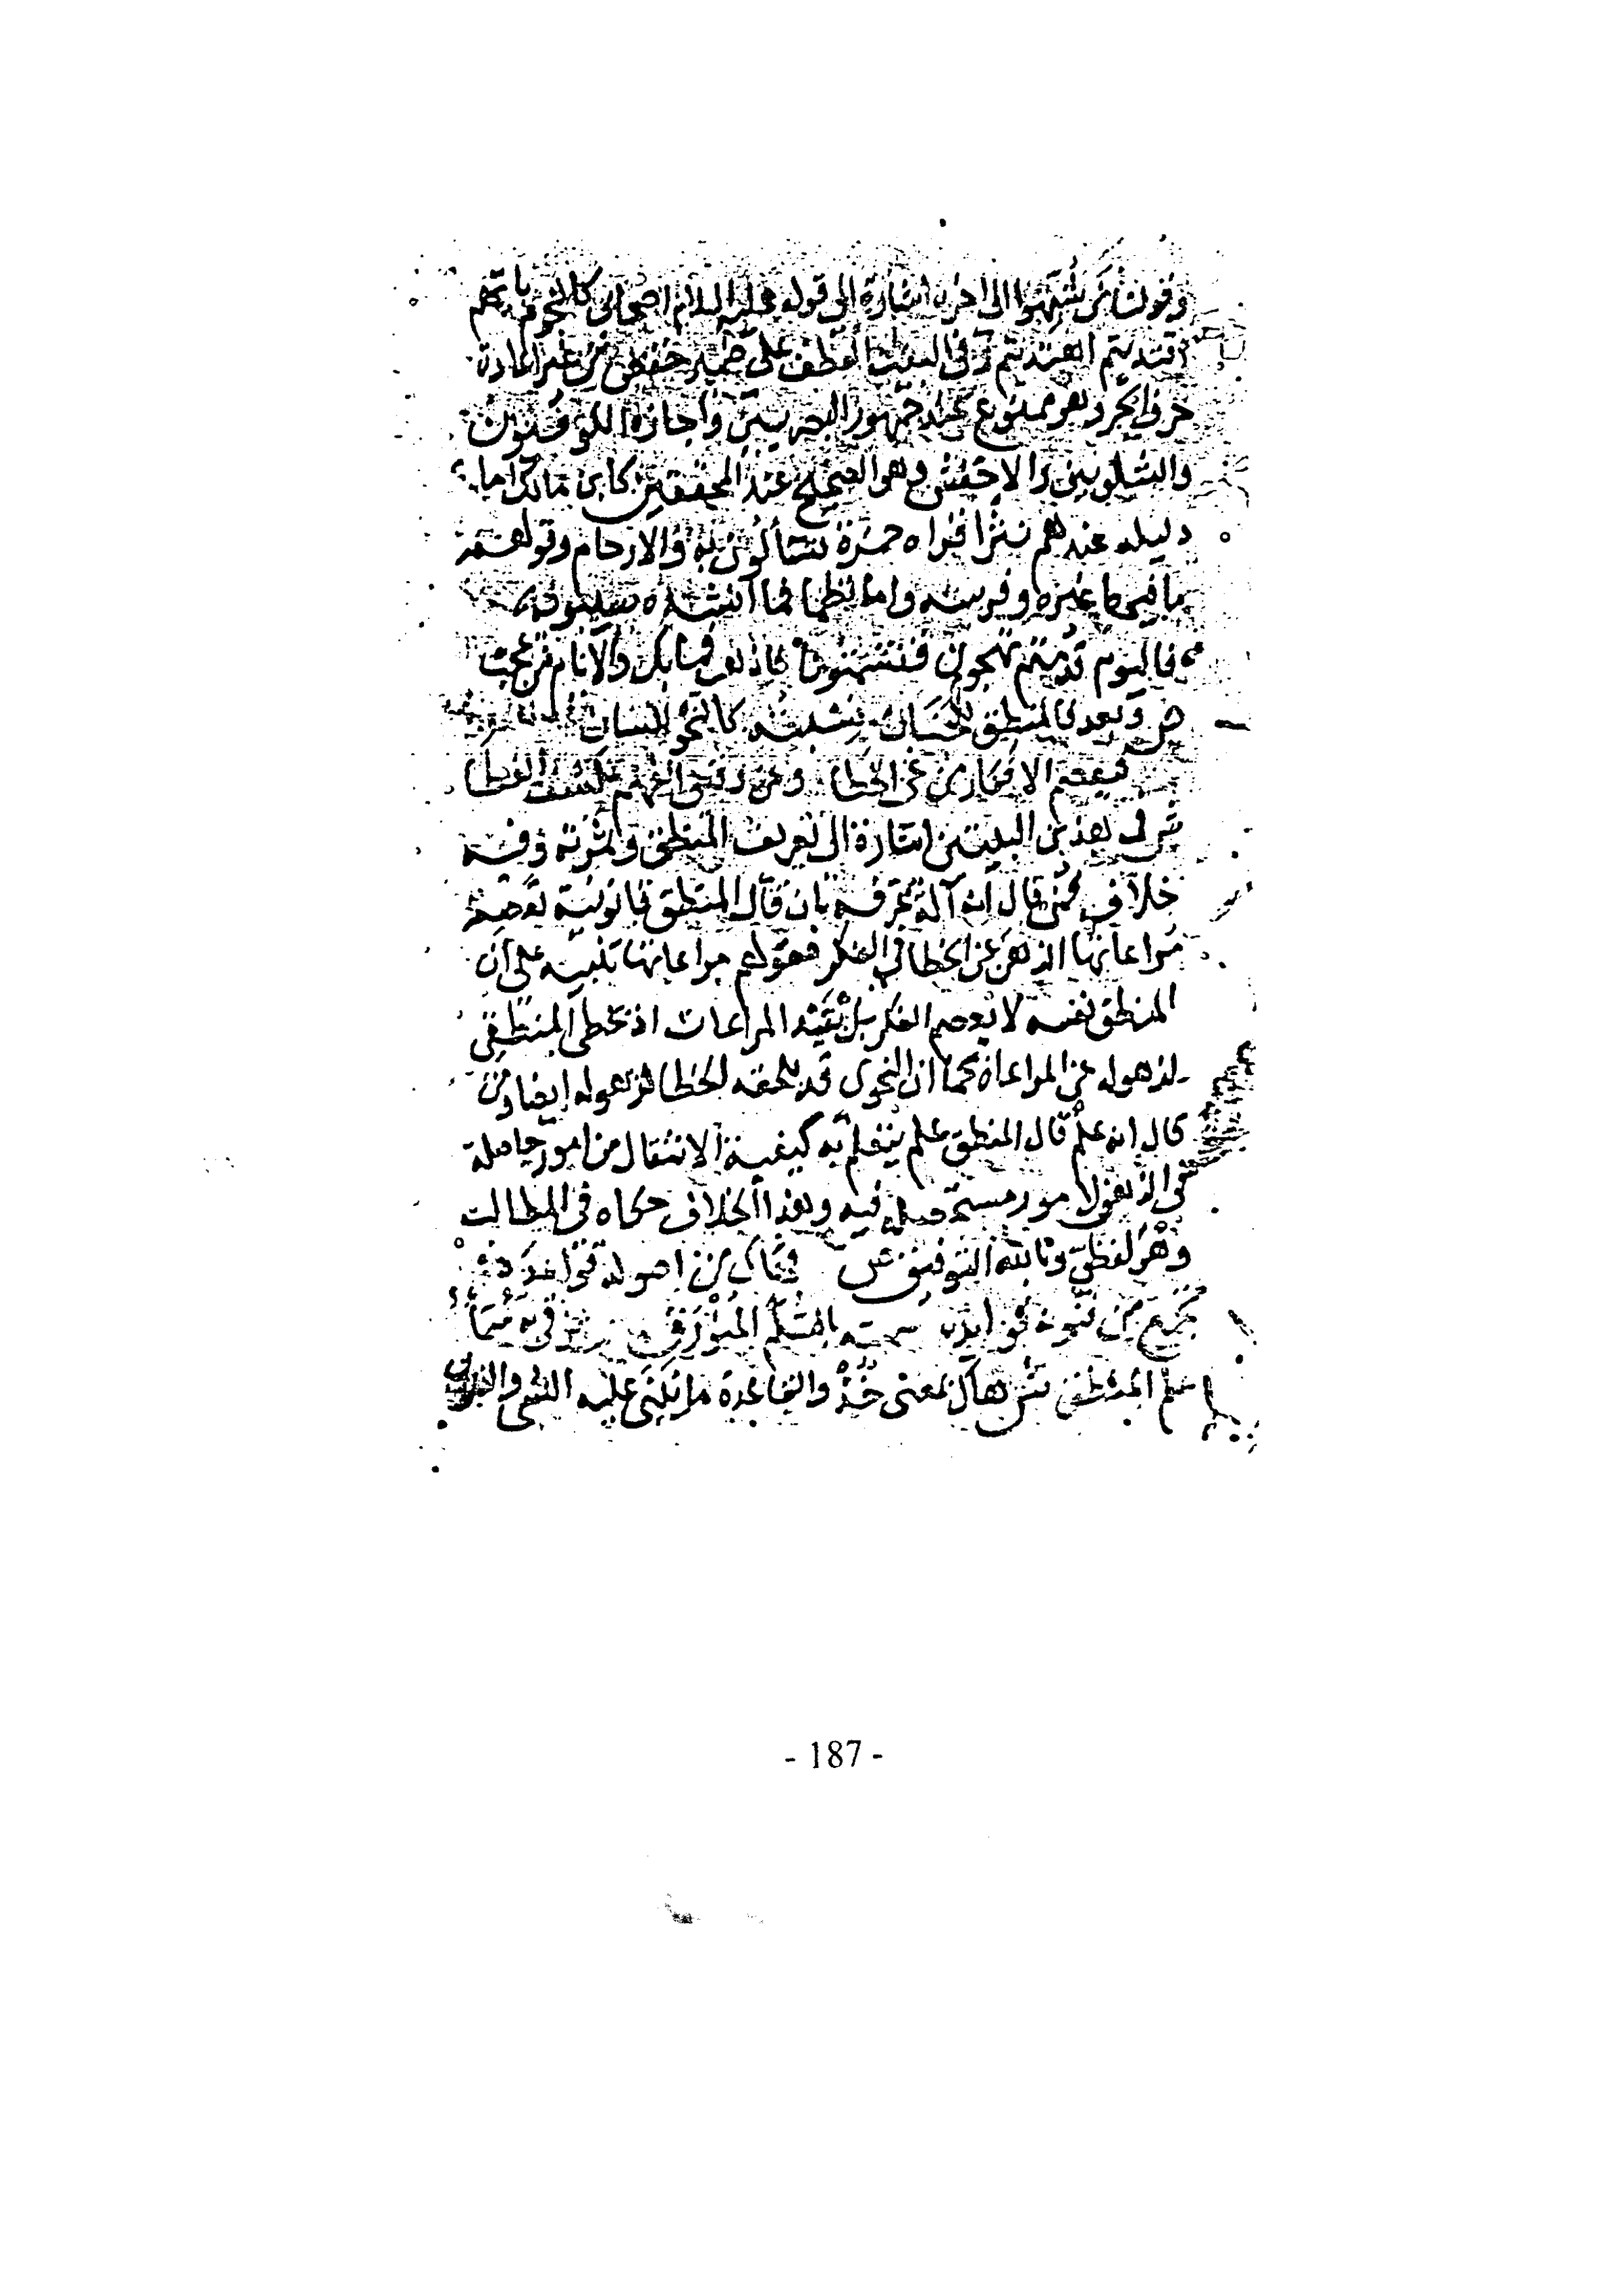 وقولنا من شبهوا الى اخره اشارة الى قوله عليه السلام اصحابي كالنجوم بايهم
اقتديتم اهتديتم وفي البيت العطف على ضمير خفض من غير اعادة
حرف الجر وهو ممنوع عند جمهور البصريين واجازه الكوفيون
والشلوبين والاخفش وهو الصحيح عند المحققين كابن مالك اما
دليله عندهم نثرا فقراه حمزة تسألون به والارحام وقولهم
ما فيها غيره وفرسه واما نظما فما انشده سيبويه
فاليوم قدمتم تهجون وتشتمونا فاذهب فما بك والانام من عجب
ص وبعد فالمنطق للجنان نسبته كالنحو للسان
فيعصم الافكار عن غي الخطا وعن دقيق الفهم يكشف الغطا
ش في هذين البيتين اشارة الى تعريف المنطق وثمرته وفيه
خلاف فمن قال انه آلة عرفه بان قال المنطق قانونية تعصم
مراعاتها الذهن عن الخطا في الفكر فقولهم مراعاتها تنبيه على ان
المنطق نفسه لا يعصم الفكر بل بقيد المراعات اذ يخطى المنطقي
لذهوله عن المراعاة كما ان النحوى قد يلحقه الخطا لذهوله ايضا ومن
قال انه علم قال المنطق علم يتعلم به كيفية الانتقال من امور حاصلة
في الذهن لامور مستحصلة فيه وهذا الخلاف حكاه في المطالب
وهو لفظي وبالله التوفيق ص فهاك من اصوله قواعدا
تجمع من فنونه فوايدا سميته بالسلم المنورق يرقى به سما
علم المنطق ش هاك بمعنى خذ والقاعدة ما ينبني عليه الشي
- 187 -